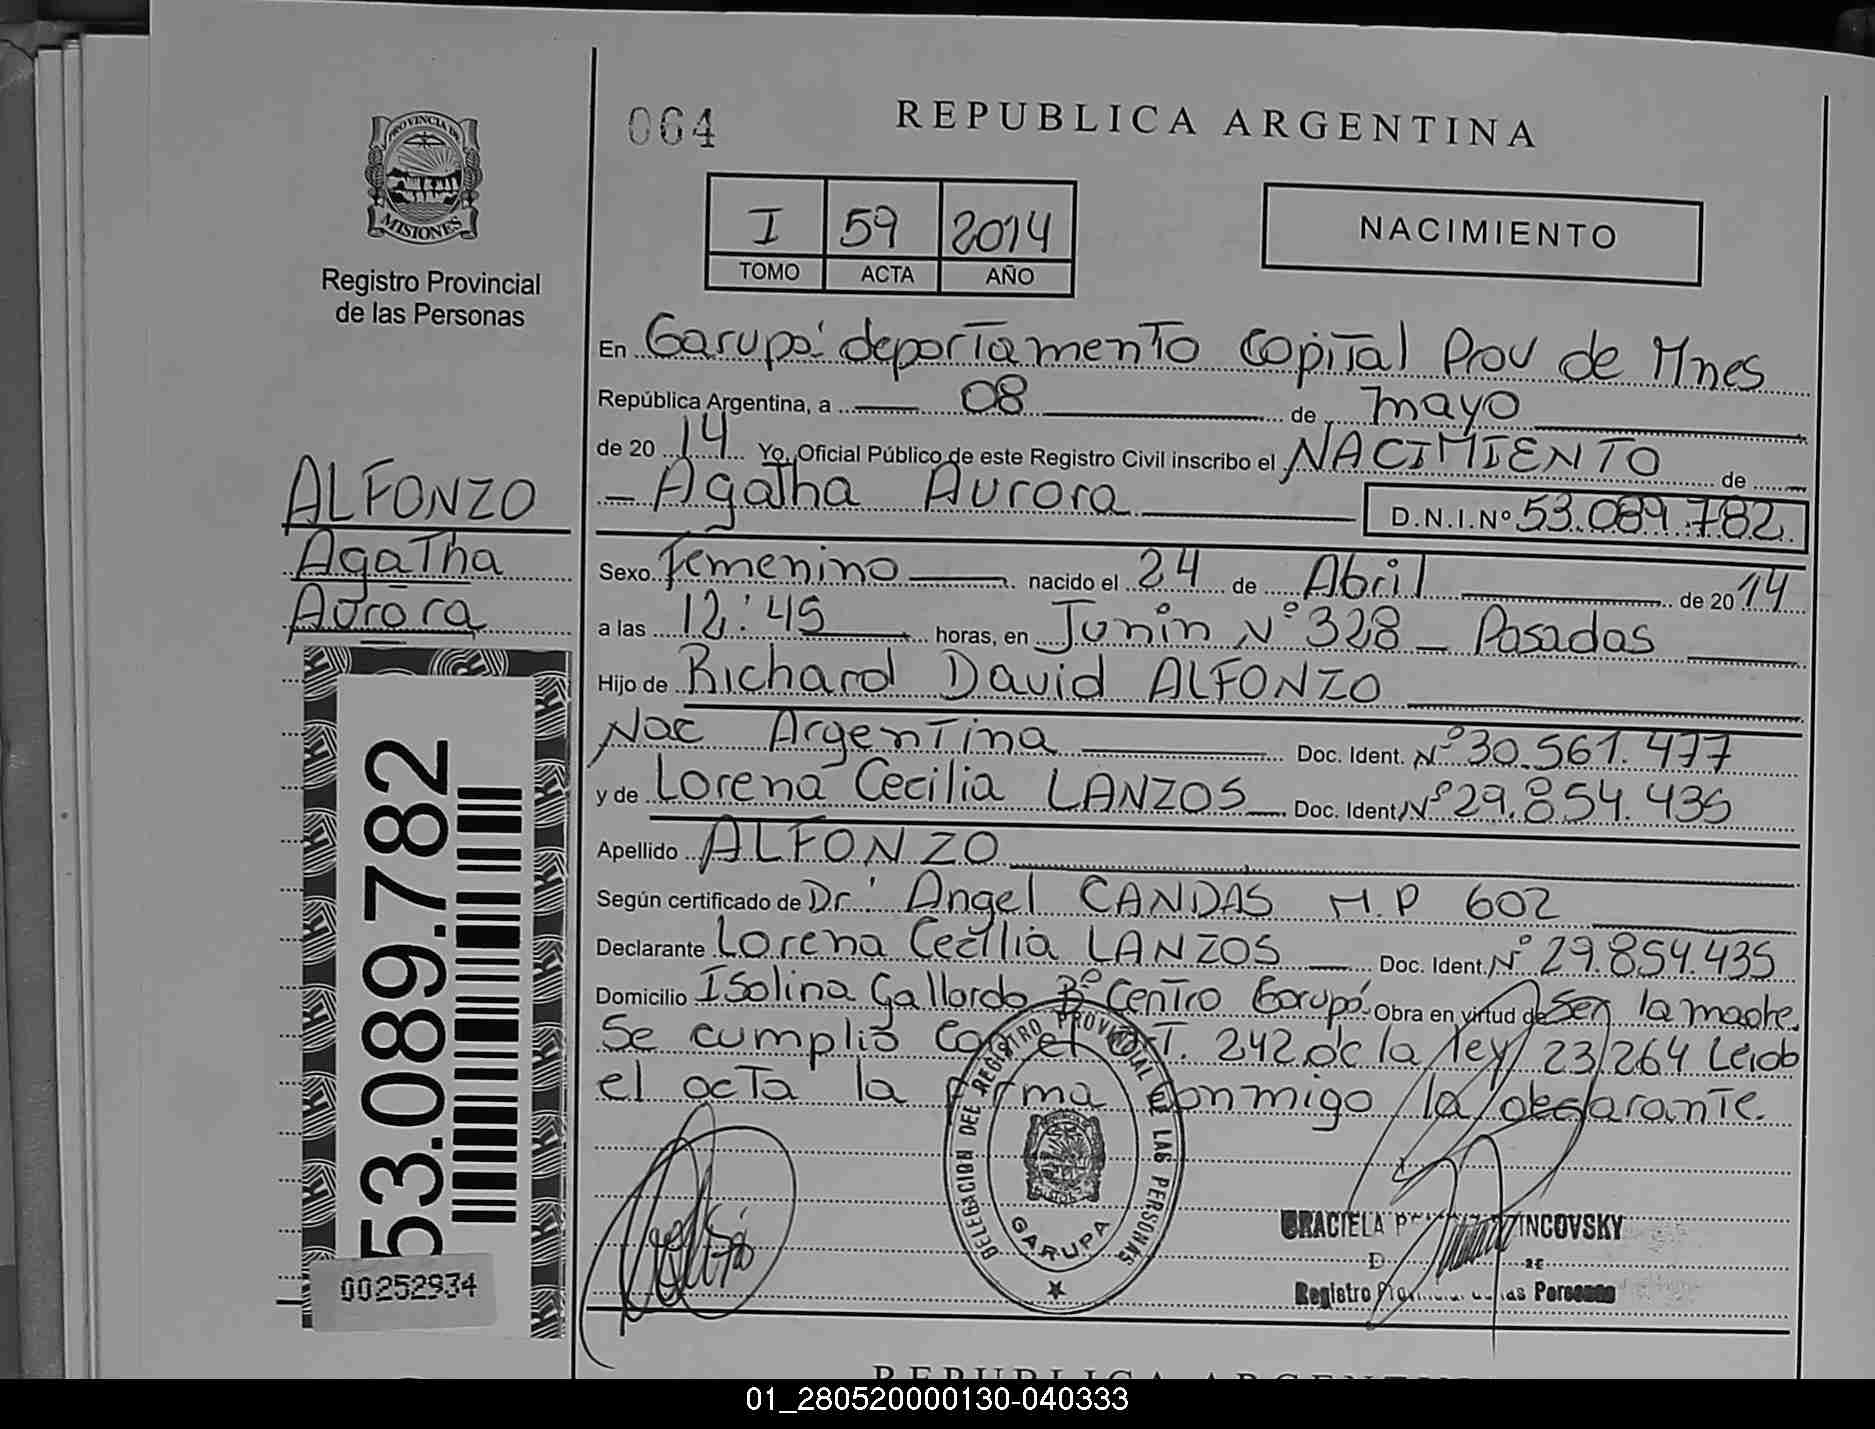 PROVINCIA DE
MISIONES
Registro Provincial
de las Personas
ALFONZO
Agatha
Aurora
53.089.782
00252934
064
REPUBLICA ARGENTINA
I 59 2014
TOMO ACTA AÑO
NACIMIENTO
En Garupá departamento Capital Prov de Mnes
República Argentina, a 08 de mayo
de 2014 Yo, Oficial Público de este Registro Civil inscribo el NACIMIENTO de
Agatha Aurora D.N.I.Nº 53.089.782
Sexo Femenino nacido el 24 de Abril de 2014
a las 12:45 horas, en Junin Nº 328 _ Posadas
Hijo de Richard David ALFONZO
Nac Argentina Doc. Ident. Nº 30.561.477
y de Lorena Cecilia LANZOS Doc. Ident. Nº 29.854.435
Apellido ALFONZO
Según certificado de Dr. Angel CANDAS M.P 602
Declarante Lorena Cecilia LANZOS Doc. Ident. Nº 29.854.435
Domicilio Isolina Gallardo Bº Centro Garupá Obra en virtud de Ser la madre.
Se cumplió con el art. 242 de la ley 23.264 Leido
el acta la firma conmigo la declarante.
DELEGACION DEL REGISTRO PROVINCIAL DE LAS PERSONAS
GARUPA
GRACIELA INCOVSKY
Registro las Personas
REPUBLICA ARGENTINA
01_280520000130-040333